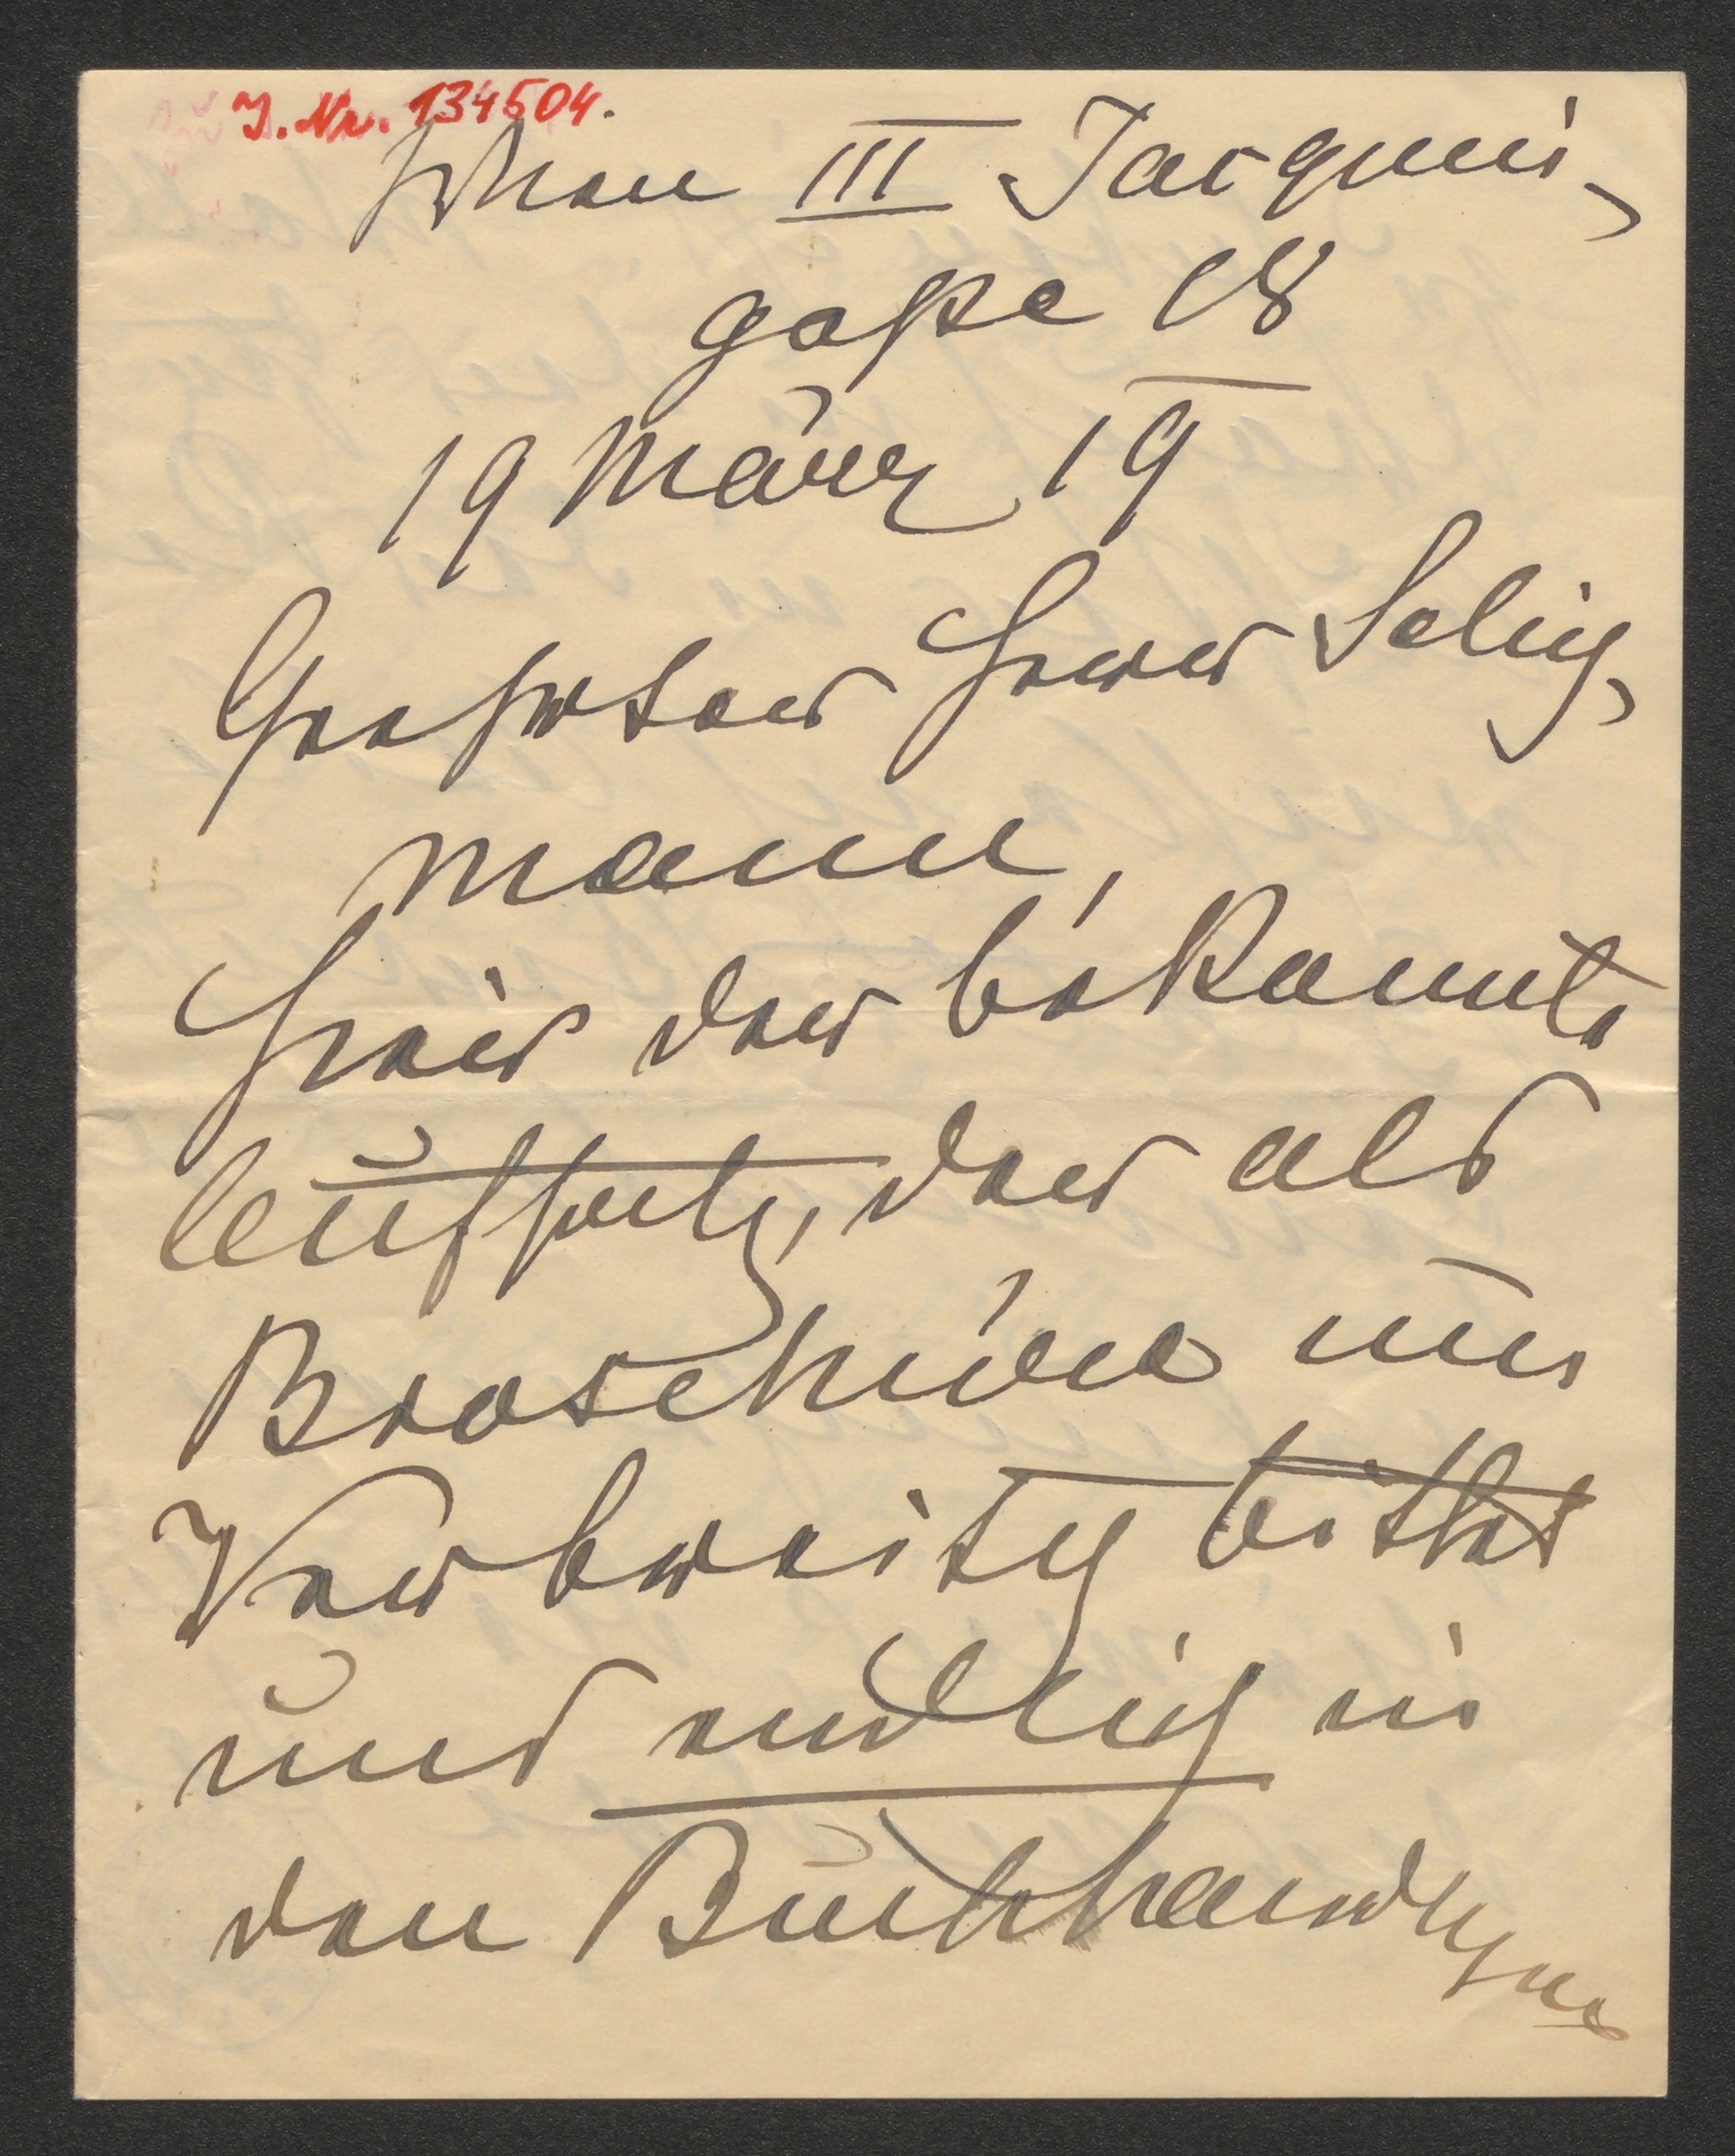 Zu J. Nr. 134504.
Wien III Jacquin,
gaße 18
19 März 19
Geehrter Herr Selig,
mann,
Hier der bekannte
Aufsatz, der als
Broschüre um
Verbreitg bittet
und endlich in
den Buchhandlgen